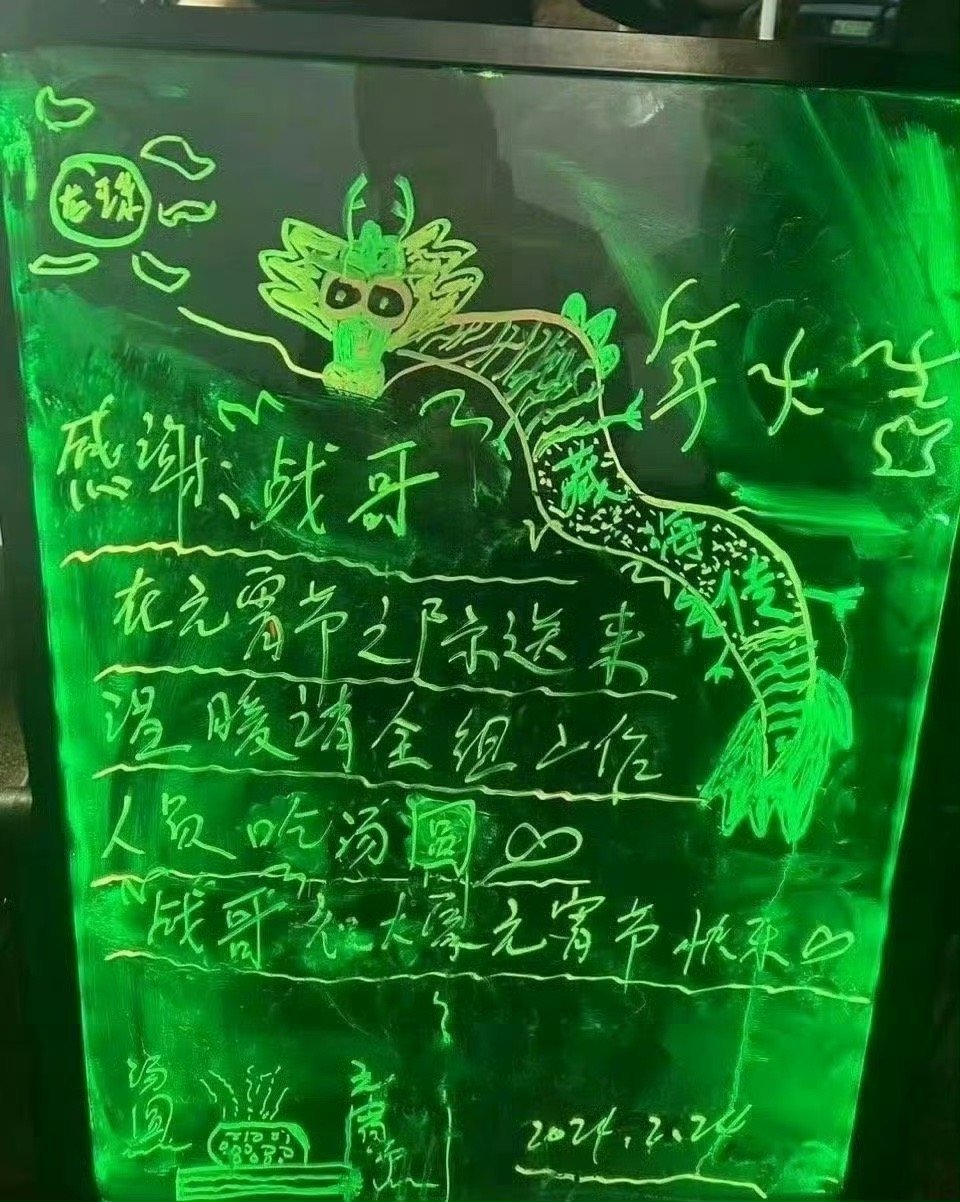 龙珠
年大吉
感谢、战哥
藏海传
在元宵节之际送来
温暖请全组工作
人员吃汤圆
战哥祝大家元宵节快乐
汤圆
元宵节
2024.2.24